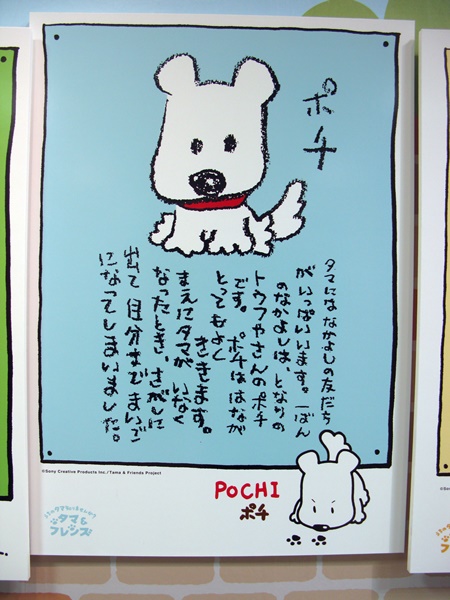 ポチ
タマにはなかよしの友だち
がいっぱいいます。一ばん
のなかよしは、となりの
トウフやさんのポチ
です。ポチははなが
とってもよく
ききます。
まえにタマがいなく
なったとき、さがしに
出て自分までまいご
になってしまいました。
©Sony Creative Products Inc./Tama & Friends Project
POCHI
ポチ
タマ&
フレンズ